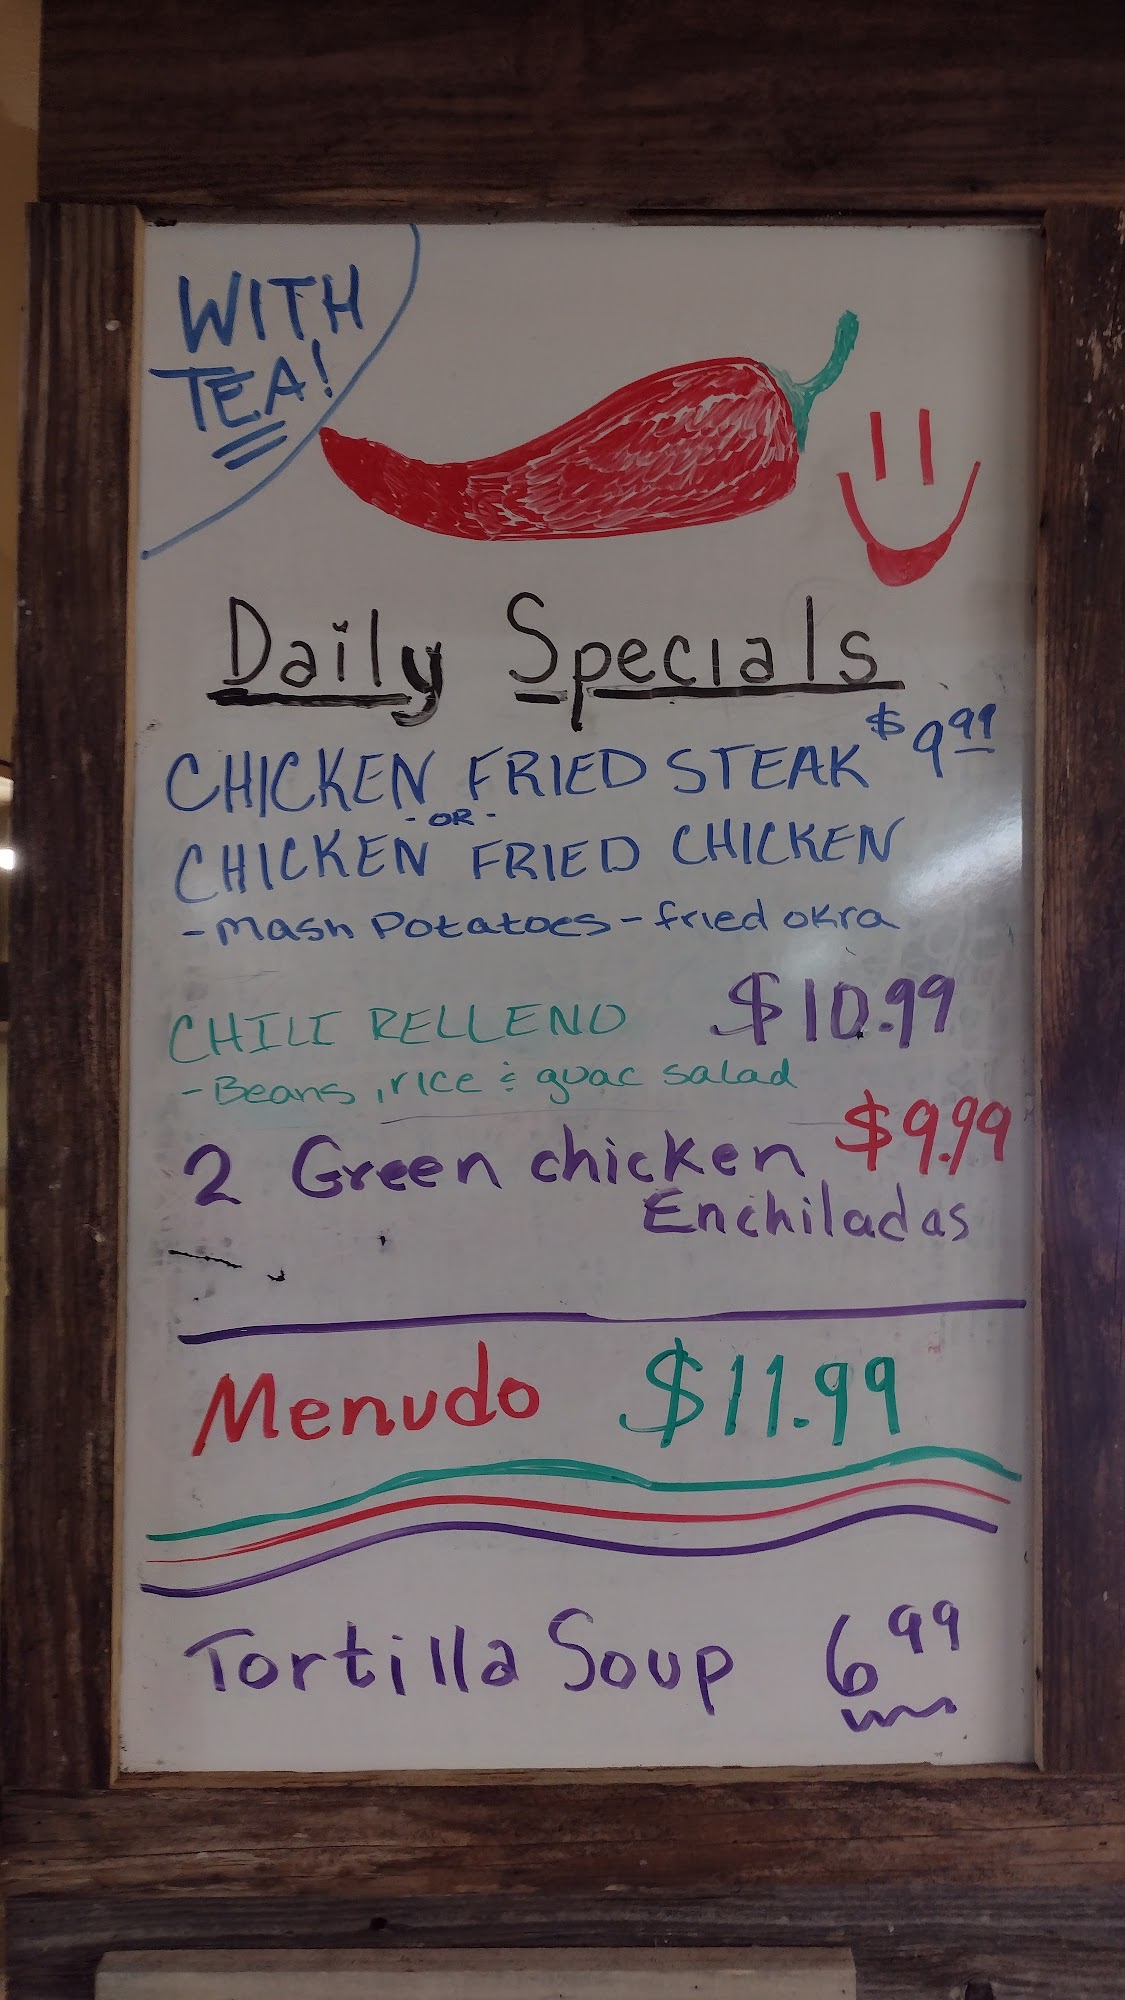 WITH
TEA!
Daily Specials
CHICKEN FRIED STEAK $9.99
- OR -
CHICKEN FRIED CHICKEN
- Mash Potatoes - fried okra
CHILI RELLENO $10.99
- Beans, rice & guac salad
2 Green chicken $9.99
Enchiladas
Menudo $11.99
Tortilla Soup 6 99